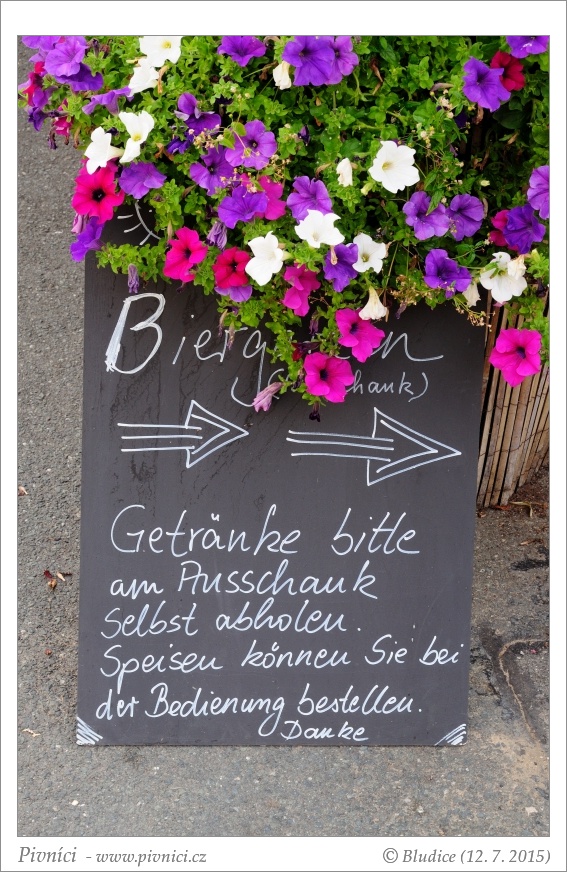 Biergarten
(Ausschank)
Getränke bitte
am Ausschank
Selbst abholen.
Speisen können Sie bei
der Bedienung bestellen.
Danke
Pivníci - www.pivnici.cz
© Bludice (12. 7. 2015)